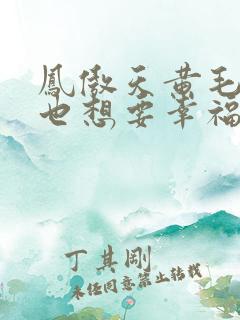 鳳傲天黃毛
也想要幸福
丁其剛
未经同意禁止转载